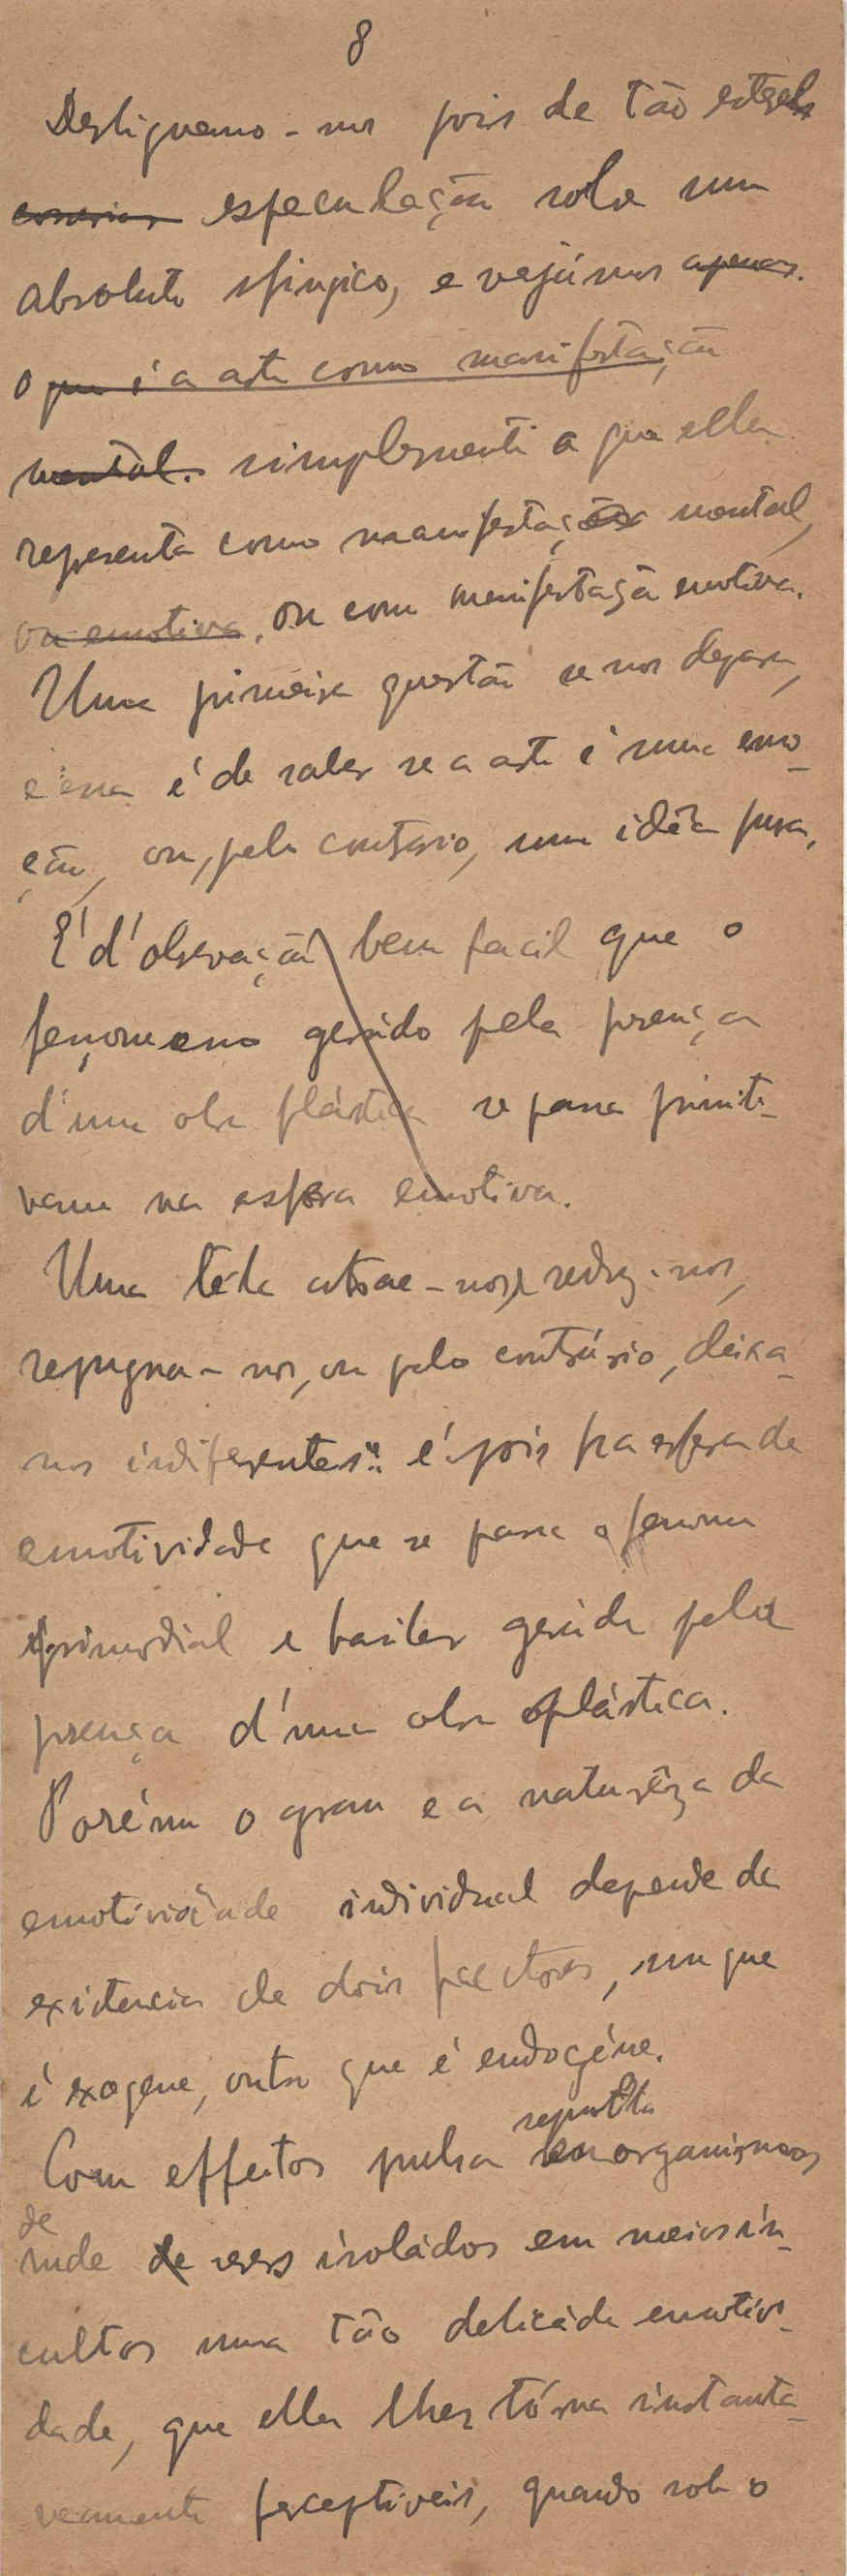 8
Desliguemo-nos pois de tão estéril
especulação sobre um
absoluto sfingico, e vejâmos apenas.
o que é a arte como manifestação
mental. simplesmente o que ella
representa como manifestação mental,
ou emotiva, ou como manifestação emotiva.
Uma primeira questão se nos depara,
e essa é de saber se a arte é uma emo-
ção, ou, pelo contrario, uma idêa pura.
E' d'observação bem facil que o
fenomeno gerado pela presença
d'uma obra plástica se passa primiti-
vam na esfera emotiva.
Uma téla atrae-nos, seduz-nos,
repugna-nos, ou pelo contrário, deixa-
nos indiferentes: é pois na esfera da
emotividade que se passa o fenom
primordial e basilar gerado pela
presença d'uma obra plástica.
Porém o grau e a naturêza da
emotividade individual depende da
existencia de dois factores, um que
é exogene, outro que é endogéne.
repentla
Com effeitos pulsa em organismos
de
rude de seres isoládos em meios in-
cultos uma tão delicáda emotivi-
dade, que ella lhes tórna instanta-
neamente perceptiveis, quando sob o